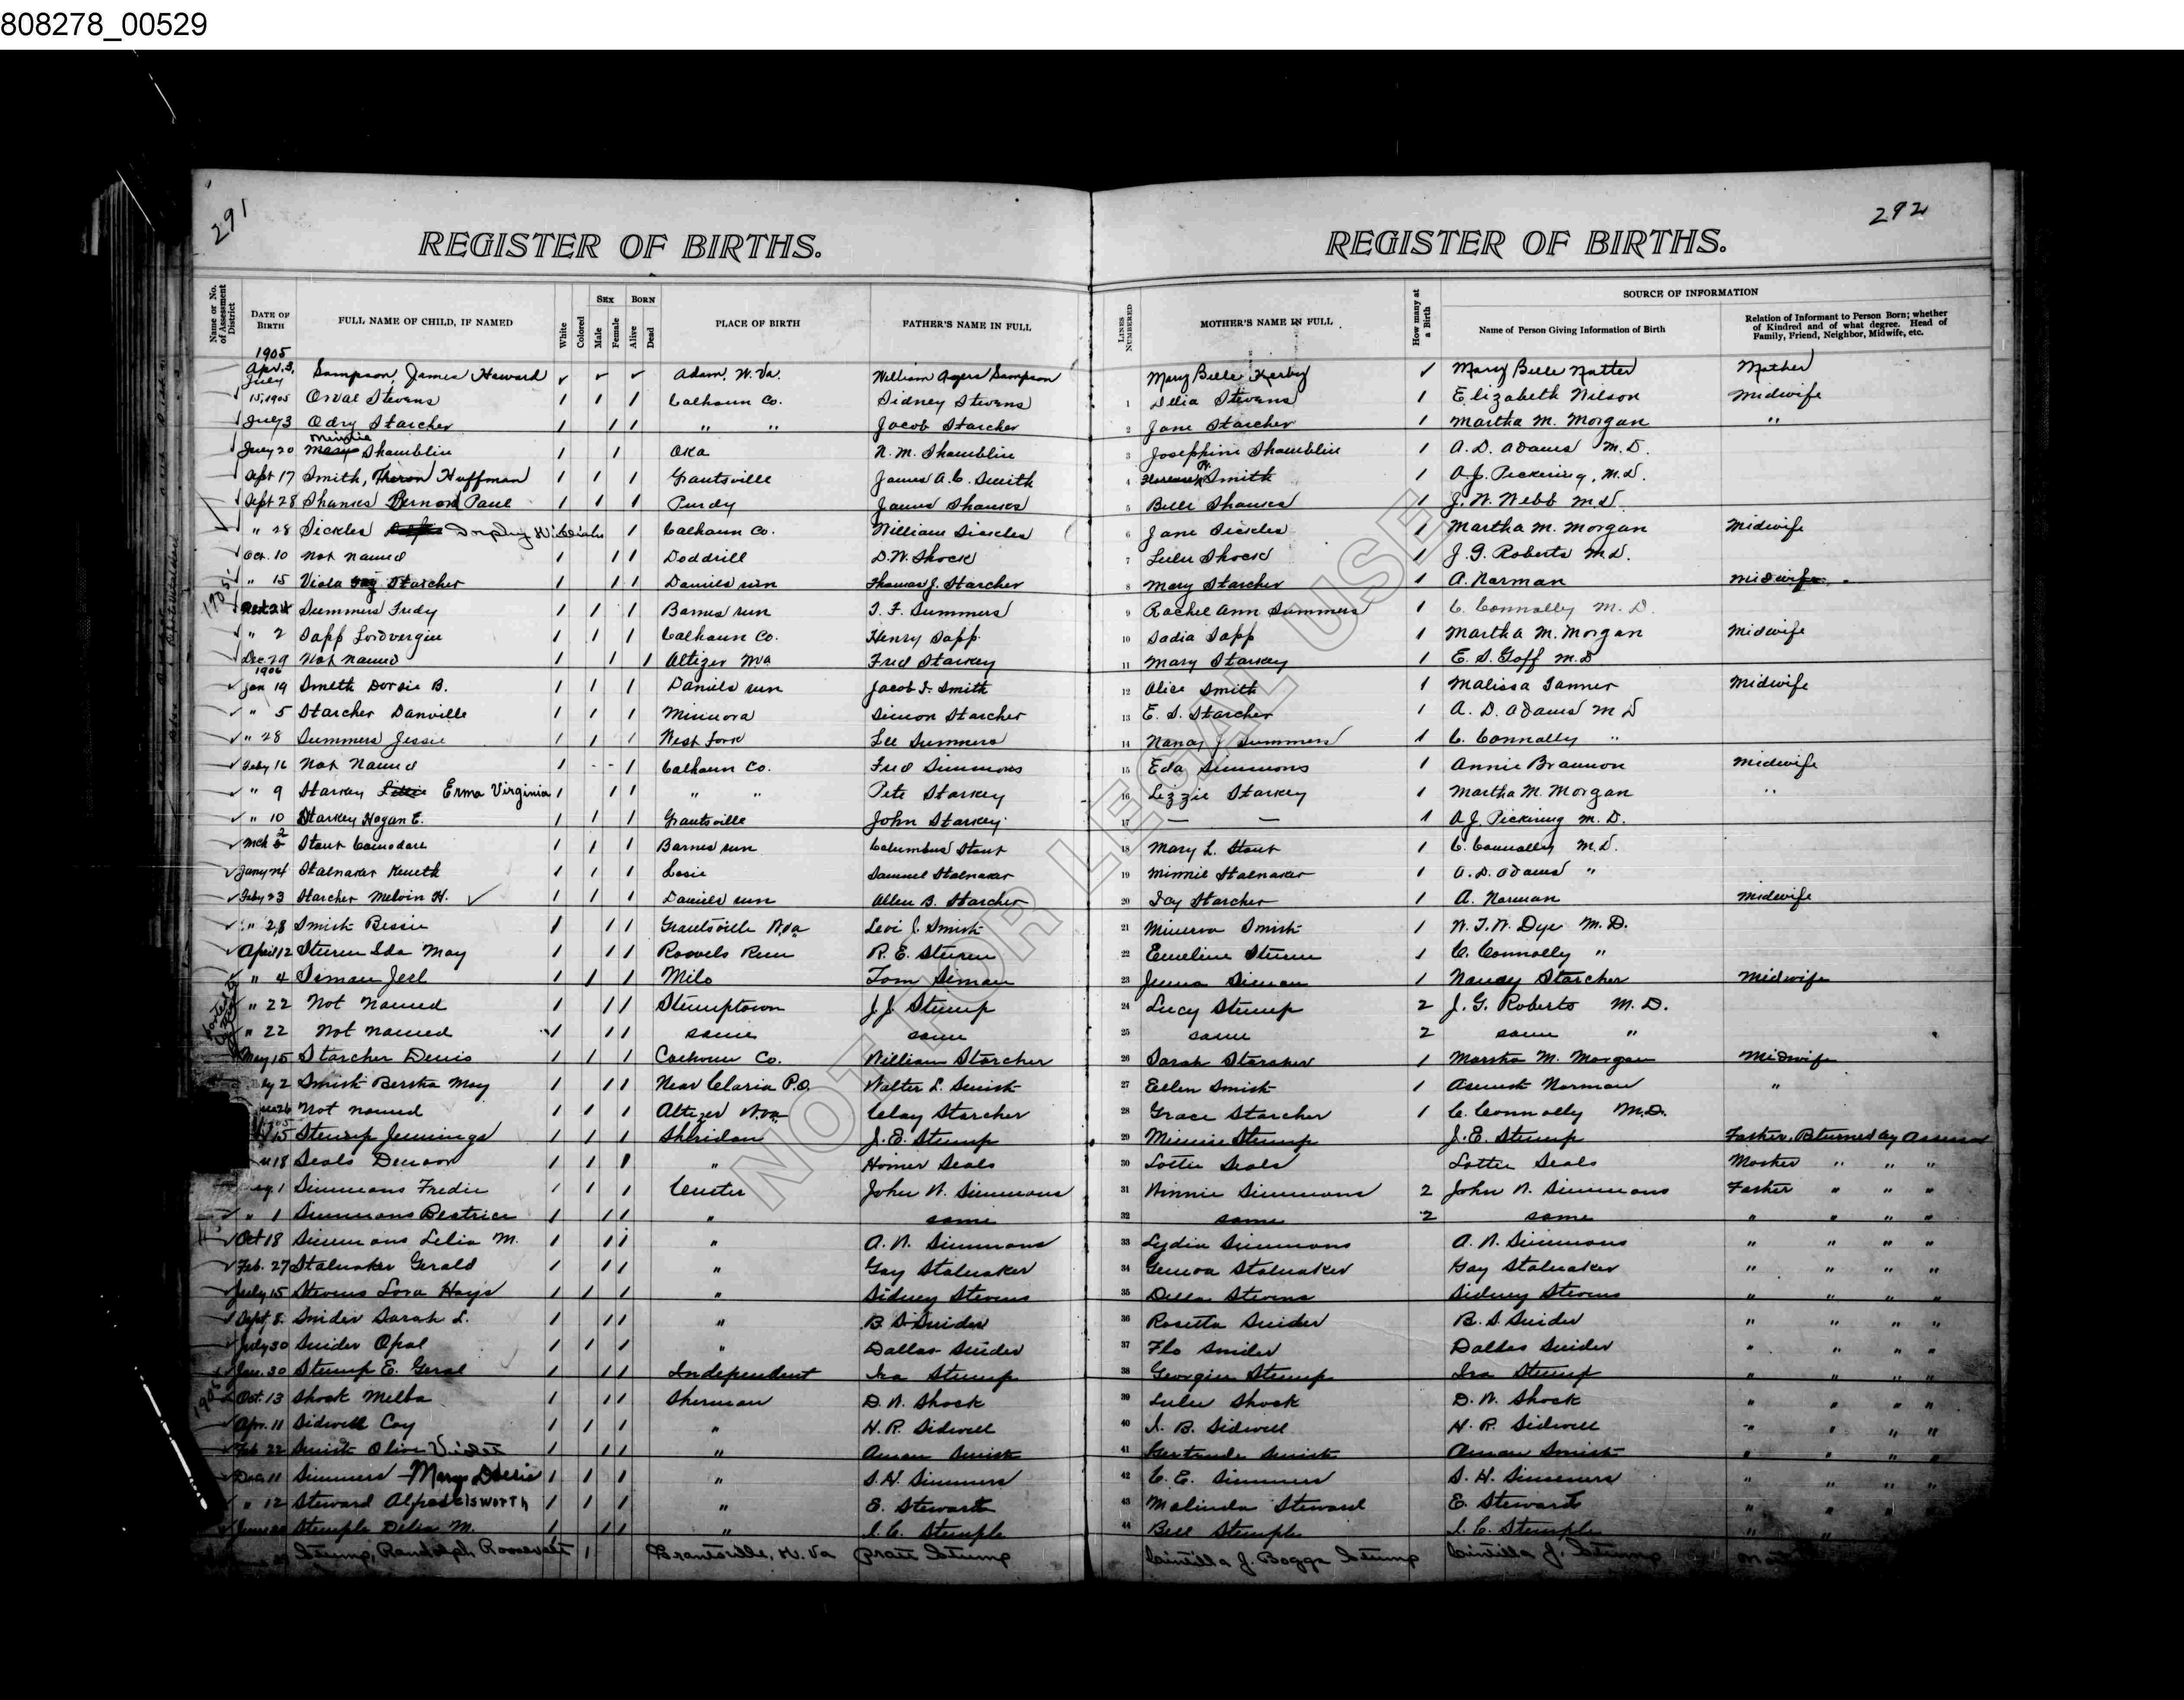 808278_00529
291
292
REGISTER OF BIRTHS.
REGISTER OF BIRTHS.
Name or No. of Assessment District
DATE OF BIRTH
FULL NAME OF CHILD, IF NAMED
White
Colored
SEX
Male
Female
BORN
Alive
Dead
PLACE OF BIRTH
FATHER'S NAME IN FULL
LINES NUMBERED
MOTHER'S NAME IN FULL
How many at a Birth
SOURCE OF INFORMATION
Name of Person Giving Information of Birth
Relation of Informant to Person Born; whether of Kindred and of what degree. Head of Family, Friend, Neighbor, Midwife, etc.
1905
Apr. 3, Sampson, James Howard ✓ ✓ ✓ Adam, W. Va. William Sampson Mary Belle Kerby ✓ Mary Belle Nutter Mother
July 15, 1905 Orval Stevens 1 1 1 Calhoun Co. Sidney Stevens 1 Delia Stevens 1 Elizabeth Nilson Midwife
July 3 Odry Starcher 1 1 1 " " Jacob Starcher 2 Jane Starcher 1 Martha M. Morgan "
July 20 Minnie Shamblin 1 1 Oka N. M. Shamblin 3 Josephine Shamblin 1 A. D. Adams M. D.
Sept 17 Smith, Theron Huffman 1 1 1 Grantsville James A. C. Smith 4 Florence Smith 1 A. J. Pickering, M. D.
Sept 28 Shanks Vernon Paul 1 1 1 Purdy James Shanks 5 Belle Shanks 1 J. W. Webb M D
" 28 Sickles 1 1 Calhoun Co. William Sickles 6 Jane Sickles 1 Martha M. Morgan Midwife
Oct. 10 Not named 1 1 1 Doddrill D. W. Shock 7 Lulu Shock 1 J. G. Roberts M D.
" 15 Viola Starcher 1 1 1 Daniels run Thomas J. Starcher 8 Mary Starcher 1 A. Norman Midwife
24 Summers Fredy 1 1 1 Barnes run T. F. Summers 9 Rachel Ann Summers 1 C. Connolly M. D.
" 2 Sapp 1 1 1 Calhoun Co. Henry Sapp 10 Sadia Sapp 1 Martha M. Morgan Midwife
Dec. 29 Not named 1 1 1 Altizer W va Fred Starkey 11 Mary Starkey 1 E. S. Goff M. D
1906
Jan 19 Smith Dorsie B. 1 1 1 Daniels run Jacob F. Smith 12 Alice Smith 1 Malissa Tanner Midwife
" 5 Starcher Danville 1 1 1 Minnora Simon Starcher 13 E. S. Starcher 1 A. D. Adams M D
" 28 Summers Jessie 1 1 1 West Fork Lee Summers 14 Nancy J Summers 1 C. Connolly "
Feby 16 Not Named 1 - - 1 Calhoun Co. Fred Simmons 15 Eda Simmons 1 Annie Brannon Midwife
" 9 Starkey Erma Virginia 1 1 1 " " Pete Starkey 16 Lizzie Starkey 1 Martha M. Morgan "
" 10 Starkey Hogan E. 1 1 1 Grantsville John Starkey 17 — — 1 A J. Pickering M. D.
Mch 2 Stout Comodore 1 1 1 Barnes run Columbus Stout 18 Mary L. Stout 1 C. Connolly M. D.
Jany 24 Stalnaker Keneth 1 1 1 Losie Samuel Stalnaker 19 Minnie Stalnaker 1 A. D. Adams "
Feby 23 Starcher Melvin H. ✓ 1 1 1 Daniels run Allen B. Starcher 20 Ivy Starcher 1 A. Norman Midwife
" 28 Smith Bessie 1 1 1 Grantsville W, Va Levi J. Smith 21 Minerva Smith 1 W. T. W. Dye M. D.
April 12 Sturm Ida May 1 1 1 Rowels Run R. E. Sturm 22 Emeline Sturm 1 C. Connolly "
" 4 Siman Jesl 1 1 1 Milo Tom Siman 23 Jenna Siman 1 Nancy Starcher Midwife
" 22 Not Named 1 1 1 Stumptown J. J. Stump 24 Lucy Stump 2 J. G. Roberts M. D.
" 22 Not named 1 1 1 same same 25 same 2 same "
May 15 Starcher Denis 1 1 1 Calhoun Co. William Starcher 26 Sarah Starcher 1 Martha M. Morgan Midwife
2 Smith Bertha May 1 1 1 Near Claria P.O. Walter L. Smith 27 Ellen Smith 1 Norman "
Not named 1 1 1 Altizer W. va. Clay Starcher 28 Grace Starcher 1 C. Connolly M. D.
15 Stump Jennings 1 1 1 Sheridan J. E. Stump 29 Minnie Stump J. E. Stump Father. Returned by Assessor
18 Seals Denson 1 1 1 " Homer Seals 30 Lottie Seals Lottie Seals Mother " " "
1 Simmons Fredie 1 1 1 Center John W. Simmons 31 Winnie Simmons 2 John W. Simmons Father " " "
" 1 Simmons Beatrice 1 1 1 " same 32 same 2 same " " " "
Oct 18 Simmons Lelia M. 1 1 1 " A. W. Simmons 33 Lydia Simmons A. W. Simmons " " " "
Feb. 27 Stalnaker Gerald 1 1 1 " Gay Stalnaker 34 Genoa Stalnaker Gay Stalnaker " " " "
July 15 Stevens Lora Hays 1 1 1 " Sidney Stevens 35 Della Stevens Sidney Stevens " " " "
Sept. 8. Snider Sarah L. 1 1 1 " B. S. Snider 36 Rosetta Snider B. S. Snider " " " "
July 30 Snider Opal 1 1 1 " Dallas Snider 37 Flo Snider Dallas Snider " " " "
Jan. 30 Stump E. Geral 1 1 1 Independent Ira Stump 38 Georgia Stump Ira Stump " " " "
Oct. 13 Shock Melba 1 1 1 Sherman D. W. Shock 39 Lulu Shock D. W. Shock " " " "
Apr. 11 Sidwell Coy 1 1 1 " H. R. Sidwell 40 I. B. Sidwell H. R. Sidwell " " " "
Feb 22 Smith Olive Violet 1 1 1 " Aman Smith 41 Gertrude Smith Aman Smith " " " "
Dec. 11 Simmers Mary 1 1 1 " S. H. Simmers 42 C. E. Simmers S. H. Simmers " " "
" 12 Steward Alfred Elsworth 1 1 1 " E. Stewart 43 Malinda Steward E. Steward " " " "
June Stemple Delia M. 1 1 1 " I. C. Stemple 44 Bell Stemple I. C. Stemple " "
Stump, Randolph Roosevelt 1 Grantsville, W. Va Pratt Stump Cintilla J. Boggs Stump Cintilla J. Stump
NOT FOR LEGAL USE